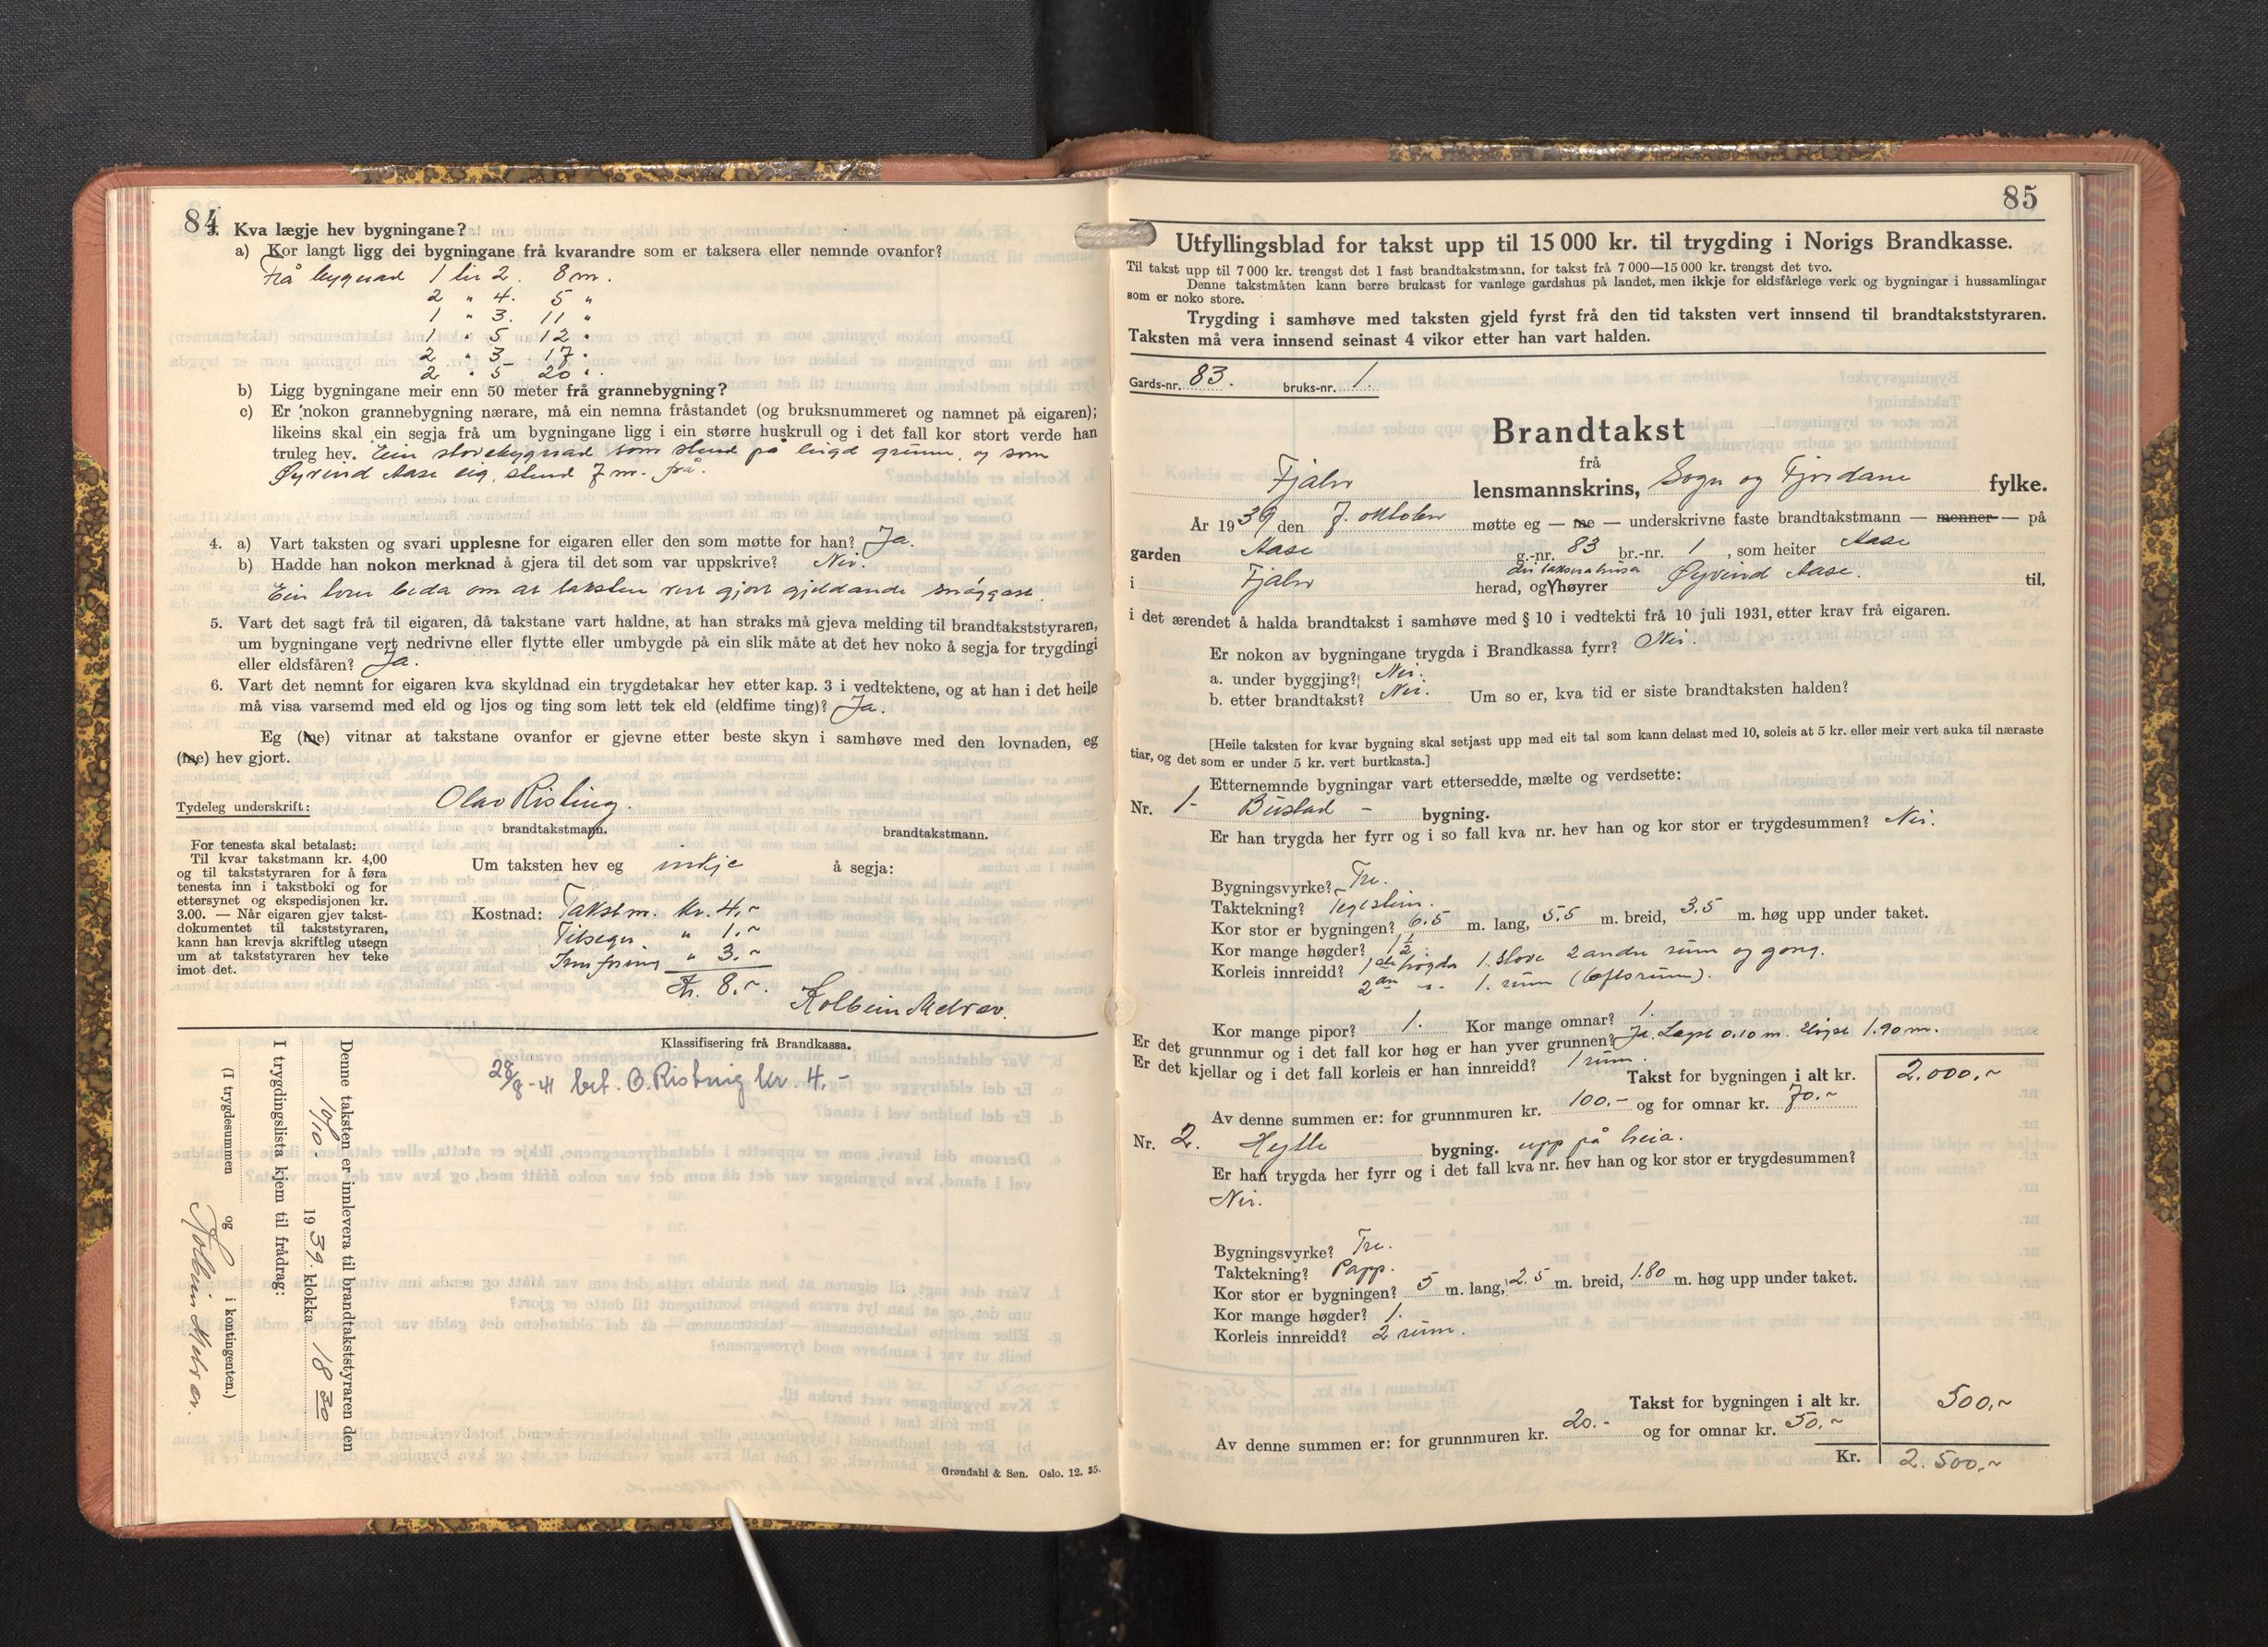 84
3. Kva lægje hev bygningane?
a) Kor langt ligg dei bygningane frå kvarandre som er taksera eller nemnde ovanfor?
Frå bygnad 1 til 2. 8 m.
2 " 4. 5 "
1 " 3. 11 "
1 " 5 12 "
2 " 3 17 "
2 " 5 20 "
b) Ligg bygningane meir enn 50 meter frå grannebygning?
c) Er nokon grannebygning nærare, må ein nemna fråstandet (og bruksnummeret og namnet på eigaren);
likeins skal ein segja frå um bygningane ligg i ein større huskrull og i det fall kor stort verde han
truleg hev. Ein stovebygnad som stend på leigd grunn, og som
Øyvind Aase eig, stend 7 m. frå.
4. a) Vart taksten og svari upplesne for eigaren eller den som møtte for han? Ja.
b) Hadde han nokon merknad å gjera til det som var uppskrive? Nei.
Ein bour beda om at taksten vert gjort gjeldande snøggast.
5. Vart det sagt frå til eigaren, då takstane vart haldne, at han straks må gjeva melding til brandtakststyraren,
um bygningane vert nedrivne eller flytte eller umbygde på ein slik måte at det hev noko å segja for trygdingi
eller eldsfåren? Ja.
6. Vart det nemnt for eigaren kva skyldnad ein trygdetakar hev etter kap. 3 i vedtektene, og at han i det heile
må visa varsemd med eld og ljos og ting som lett tek eld (eldfime ting)? Ja.
Eg (me) vitnar at takstane ovanfor er gjevne etter beste skyn i samhøve med den lovnaden, eg
(me) hev gjort.
Tydeleg underskrift: Olav Risting.
brandtakstmann. brandtakstmann.
For tenesta skal betalast:
Til kvar takstmann kr. 4,00
og til takststyraren for å føra
tenesta inn i takstboki og for
ettersynet og ekspedisjonen kr.
3.00. — Når eigaren gjev takst-
dokumentet til takststyraren,
kann han krevja skriftleg utsegn
um at takststyraren hev teke
imot det.
Um taksten hev eg inkje å segja:
Kostnad: Takstm. kr. 4,-
Tilsegn. " 1,-
Innføring " 3,-
Kr. 8.-
Kolbein Melvær.
Klassifisering frå Brandkassa.
28/8-41 bet. O. Risting kr. 4.-
Denne taksten er innlevera til brandtakststyraren den
10/10- 1939. klokka 18 30
I trygdingslista kjem til frådrag:
(I trygdesummen og i kontingenten.)
Kolbein Melvær.
Grøndahl & Søn. Oslo. 12. 35.
85
Utfyllingsblad for takst upp til 15 000 kr. til trygding i Norigs Brandkasse.
Til takst upp til 7 000 kr. trengst det 1 fast brandtakstmann, for takst frå 7 000—15 000 kr. trengst det tvo.
Denne takstmåten kann berre brukast for vanlege gardshus på landet, men ikkje for eldsfårlege verk og bygningar i hussamlingar
som er noko store.
Trygding i samhøve med taksten gjeld fyrst frå den tid taksten vert innsend til brandtakststyraren.
Taksten må vera innsend seinast 4 vikor etter han vart halden.
Gards-nr. 83. bruks-nr. 1.
Brandtakst
frå
Fjaler lensmannskrins, Sogn og Fjordane fylke.
År 1939 den 7. oktober møtte eg — me — underskrivne faste brandtakstmann — menner — på
garden Aase g.-nr. 83 br.-nr. 1, som heiter Aase
dei taksera husa
i Fjaler herad, og høyrer Øyvind Aase. til,
i det ærendet å halda brandtakst i samhøve med § 10 i vedtekti frå 10 juli 1931, etter krav frå eigaren.
Er nokon av bygningane trygda i Brandkassa fyrr? Nei.
a. under byggjing? Nei.
b. etter brandtakst? Nei. Um so er, kva tid er siste brandtaksten halden?
[Heile taksten for kvar bygning skal setjast upp med eit tal som kann delast med 10, soleis at 5 kr. eller meir vert auka til næraste
tiar, og det som er under 5 kr. vert burtkasta.]
Etternemnde bygningar vart ettersedde, mælte og verdsette:
Nr. 1- Bustad - bygning.
Er han trygda her fyrr og i so fall kva nr. hev han og kor stor er trygdesummen? Nei.
Bygningsvyrke? Tre.
Taktekning? Teglstein.
Kor stor er bygningen? 6.5 m. lang, 5.5 m. breid, 3.5 m. høg upp under taket.
Kor mange høgder? 1 1/2.
Korleis innreidd? 1ste høgda 1. stove 2 andre rum og gong.
2dre " 1. rum (loftsrum).
Kor mange pipor? 1. Kor mange omnar? 1.
Er det grunnmur og i det fall kor høg er han yver grunnen? Ja. Lægst 0.10 m. Høgst 1.90 m.
Er det kjellar og i det fall korleis er han innreidd? 1 rum.
Takst for bygningen i alt kr. 2.000,-
Av denne summen er: for grunnmuren kr. 100.- og for omnar kr. 70.-
Nr. 2. Hytte bygning. upp på heia.
Er han trygda her fyrr og i det fall kva nr. hev han og kor stor er trygdesummen?
Nei.
Bygningsvyrke? Tre.
Taktekning? Papp.
Kor stor er bygningen? 5 m. lang, 2.5 m. breid, 1.80 m. høg upp under taket.
Kor mange høgder? 1.
Korleis innreidd? 2 rum.
Takst for bygningen i alt kr. 500,-
Av denne summen er: for grunnmuren kr. 20.- og for omnar kr. 50.-
Kr. 2.500,-